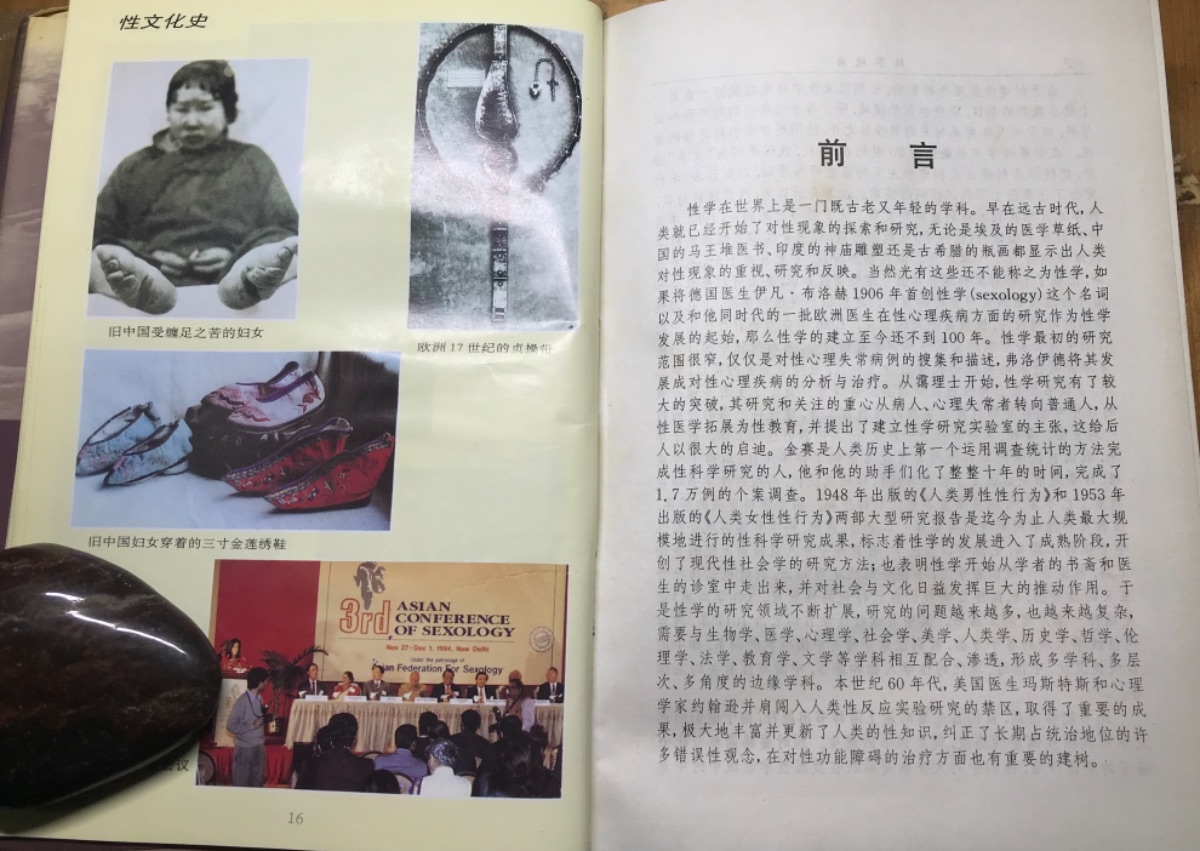 性文化史
旧中国受缠足之苦的妇女
欧洲17世纪的贞操带
旧中国妇女穿着的三寸金莲绣鞋
3rd ASIAN
CONFERENCE
OF SEXOLOGY
Nov 27-Dec 1, 1994, New Delhi
Under the patronage of
Asian Federation For Sexology
会议
16
前言
性学在世界上是一门既古老又年轻的学科。早在远古时代,人
类就已经开始了对性现象的探索和研究,无论是埃及的医学草纸、中
国的马王堆医书、印度的神庙雕塑还是古希腊的瓶画都显示出人类
对性现象的重视、研究和反映。当然光有这些还不能称之为性学,如
果将德国医生伊凡·布洛赫1906年首创性学(sexology)这个名词
以及和他同时代的一批欧洲医生在性心理疾病方面的研究作为性学
发展的起始,那么性学的建立至今还不到100年。性学最初的研究
范围很窄,仅仅是对性心理失常病例的搜集和描述,弗洛伊德将其发
展成对性心理疾病的分析与治疗。从霭理士开始,性学研究有了较
大的突破,其研究和关注的重心从病人、心理失常者转向普通人,从
性医学拓展为性教育,并提出了建立性学研究实验室的主张,这给后
人以很大的启迪。金赛是人类历史上第一个运用调查统计的方法完
成性科学研究的人,他和他的助手们化了整整十年的时间,完成了
1.7万例的个案调查。1948年出版的《人类男性性行为》和1953年
出版的《人类女性性行为》两部大型研究报告是迄今为止人类最大规
模地进行的性科学研究成果,标志着性学的发展进入了成熟阶段,开
创了现代性社会学的研究方法;也表明性学开始从学者的书斋和医
生的诊室中走出来,并对社会与文化日益发挥巨大的推动作用。于
是性学的研究领域不断扩展,研究的问题越来越多,也越来越复杂,
需要与生物学、医学、心理学、社会学、美学、人类学、历史学、哲学、伦
理学、法学、教育学、文学等学科相互配合、渗透,形成多学科、多层
次、多角度的边缘学科。本世纪60年代,美国医生玛斯特斯和心理
学家约翰逊并肩闯入人类性反应实验研究的禁区,取得了重要的成
果,极大地丰富并更新了人类的性知识,纠正了长期占统治地位的许
多错误性观念,在对性功能障碍的治疗方面也有重要的建树。